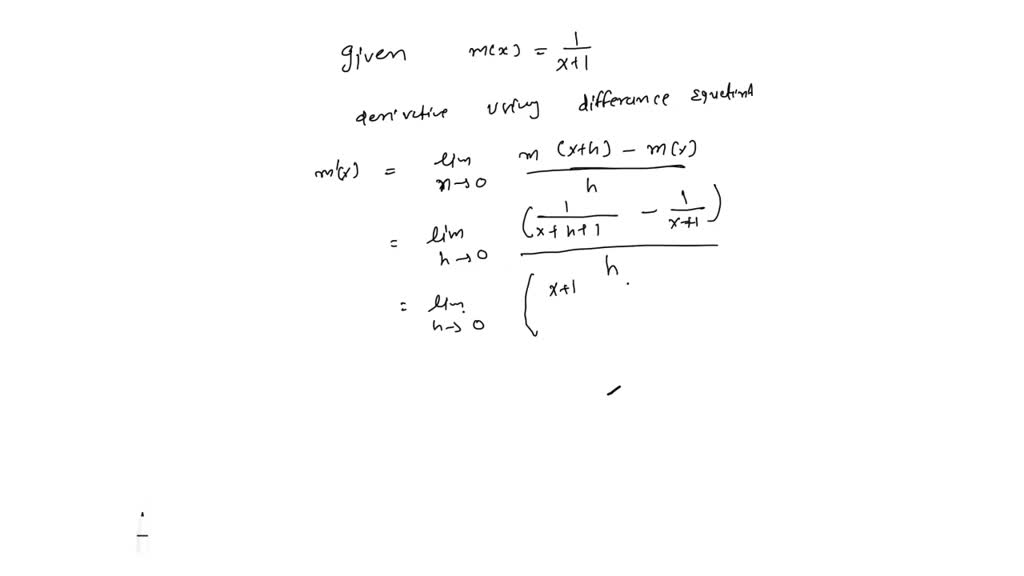 given m(x) = 1/(x+1)
derivative using differance Equetind
m'(x) = lim n→0 (m (x+h) - m(x))/h
= lim h→0 (1/(x+h+1) - 1/(x+1))/h
= lim h→0 ( x+1